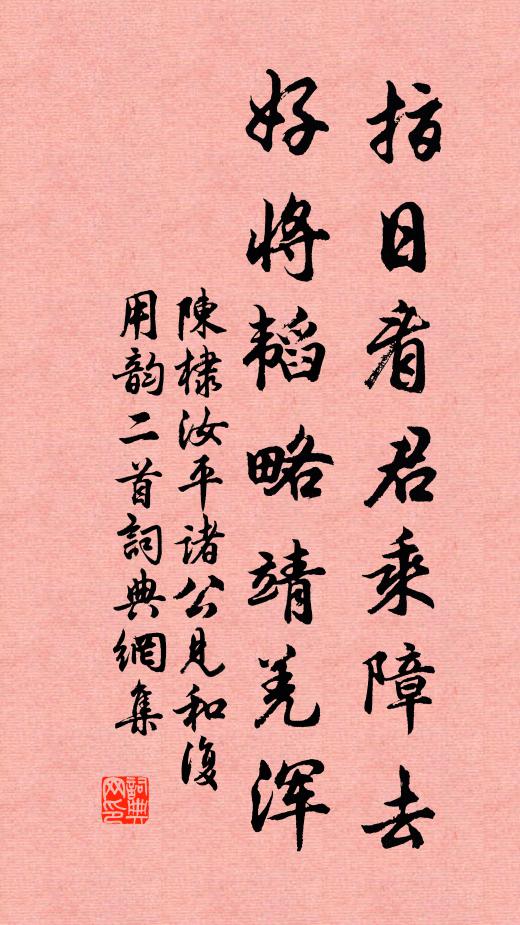 指日看君乘障去
好将韬略靖羌浑
陳棣汝平諸公見和復
用韵二首詞典網集
詞典網印